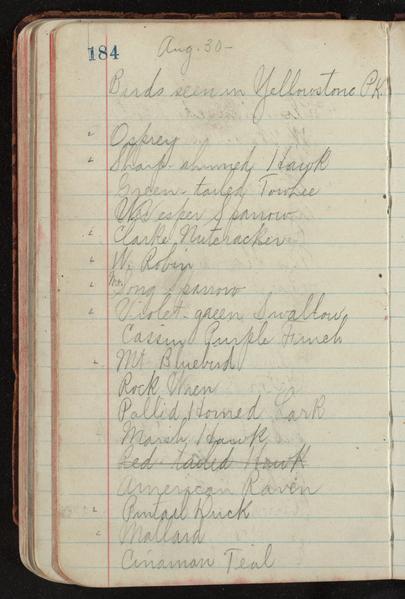 184
Aug. 30-
Birds seen in Yellowstone Pk.
Osprey
Sharp-shinned Hawk
Green-tailed Towhee
Vesper Sparrow
Clarke Nutcracker
W. Robin
Mt. Song Sparrow
Violet-green Swallow
Cassin Purple Finch
Mt. Bluebird
Rock Wren
Pallid Horned Lark
Marsh Hawk
Red-tailed Hawk
American Raven
Pintail Duck
Mallard
Cinaman Teal